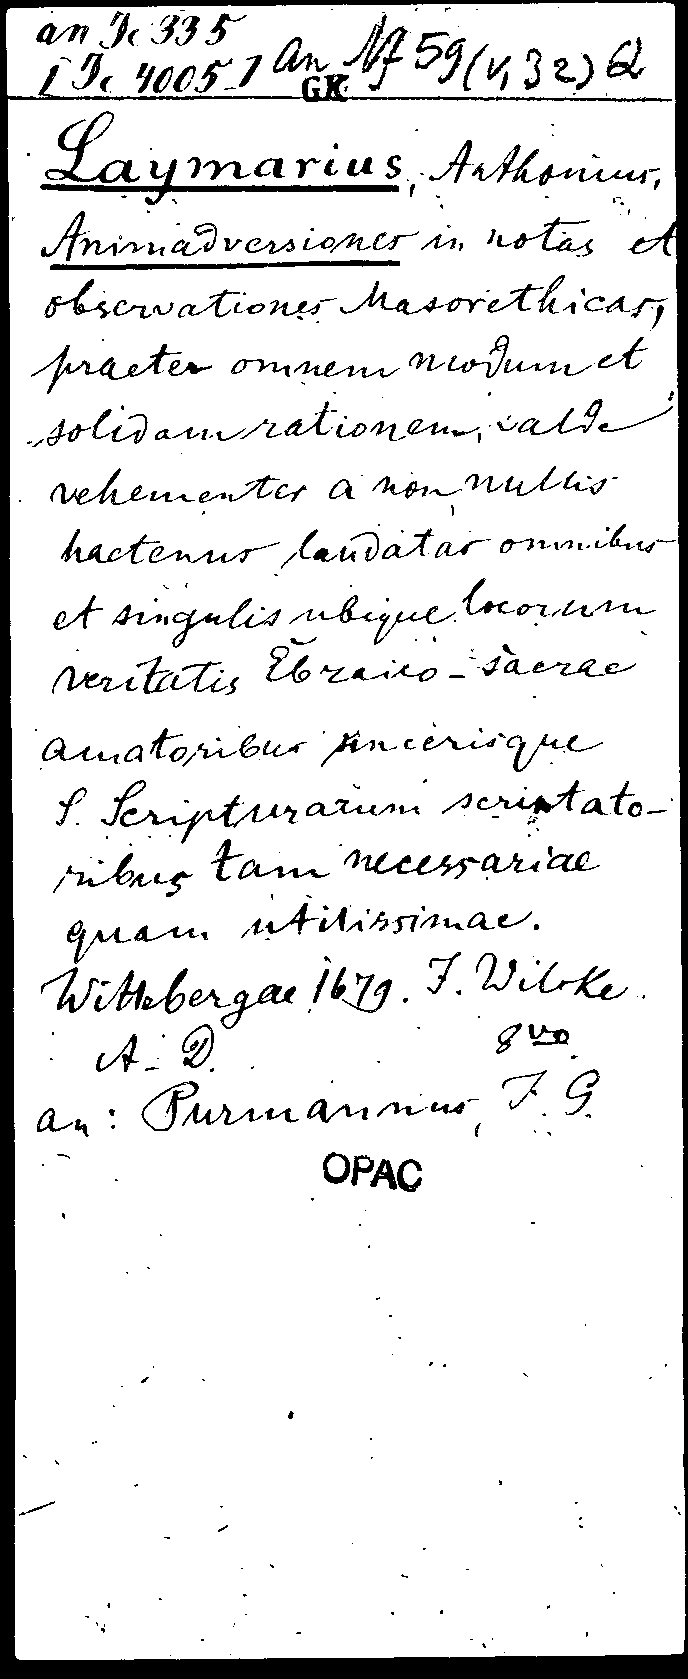 an Jc 335
I Jc 4005-1 an Nf 59 (V, 32) Q
GK
Laymarius, Anthonius,
Animadversiones in notas et
observationes Masorethicas,
praeter omnem modum et
solidam rationem, valde
vehementer a non nullis
hactenus laudatas omnibus
et singulis ubique locorum
veritatis Ebraico-sacrae
amatoribus sincerisque
S. Scripturarum scrutato-
ribus tam necessariae
quam utilissimae.
Wittebergae 1679. J. Wilcke.
A-D. 8vo
an: Purmannus, J. G.
OPAC